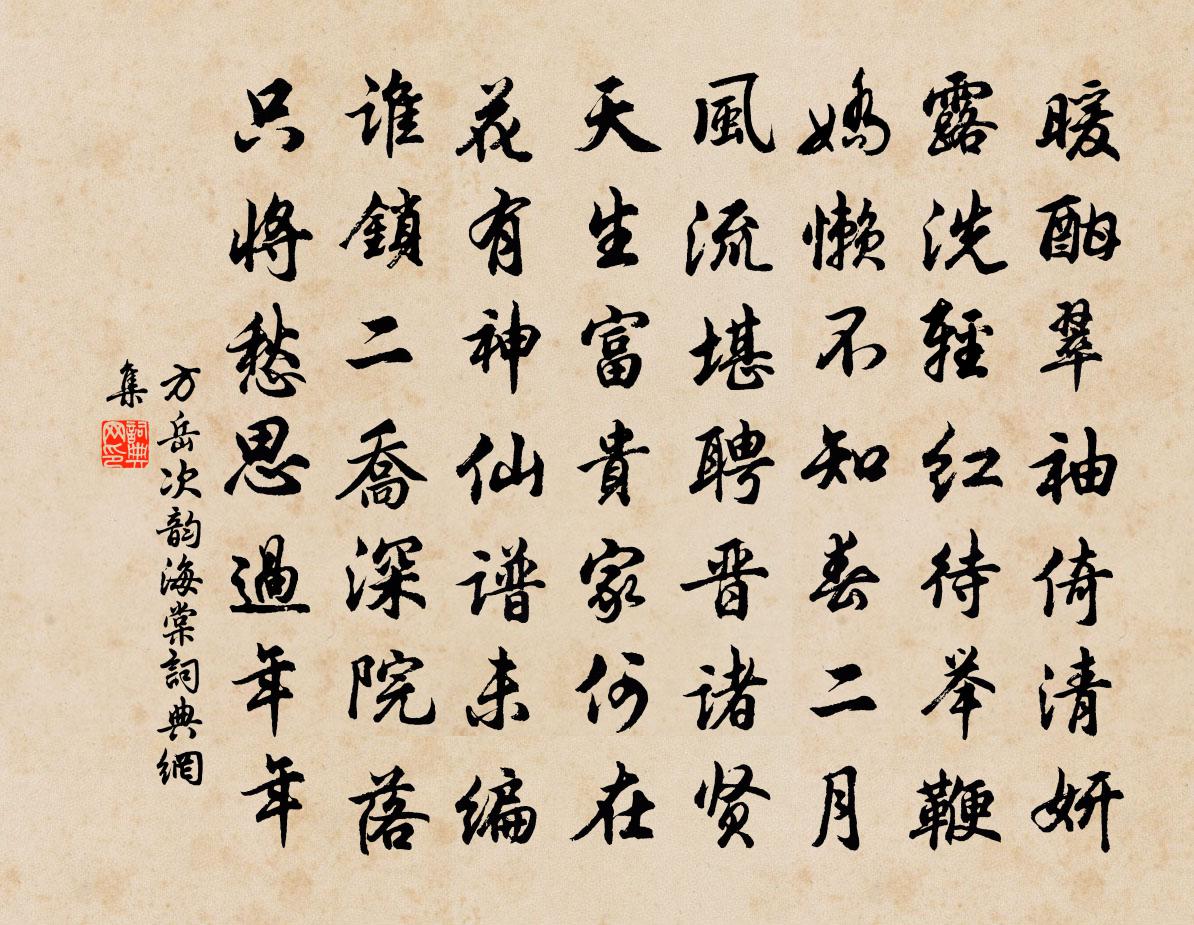 暖酣翠袖倚清妍
露洗轻红待举鞭
娇懒不知春二月
風流堪聘晋诸贤
天生富貴家何在
花有神仙谱未编
谁鎖二喬深院落
只将愁思過年年
方岳次韵海棠詞典網
集
詞典网印